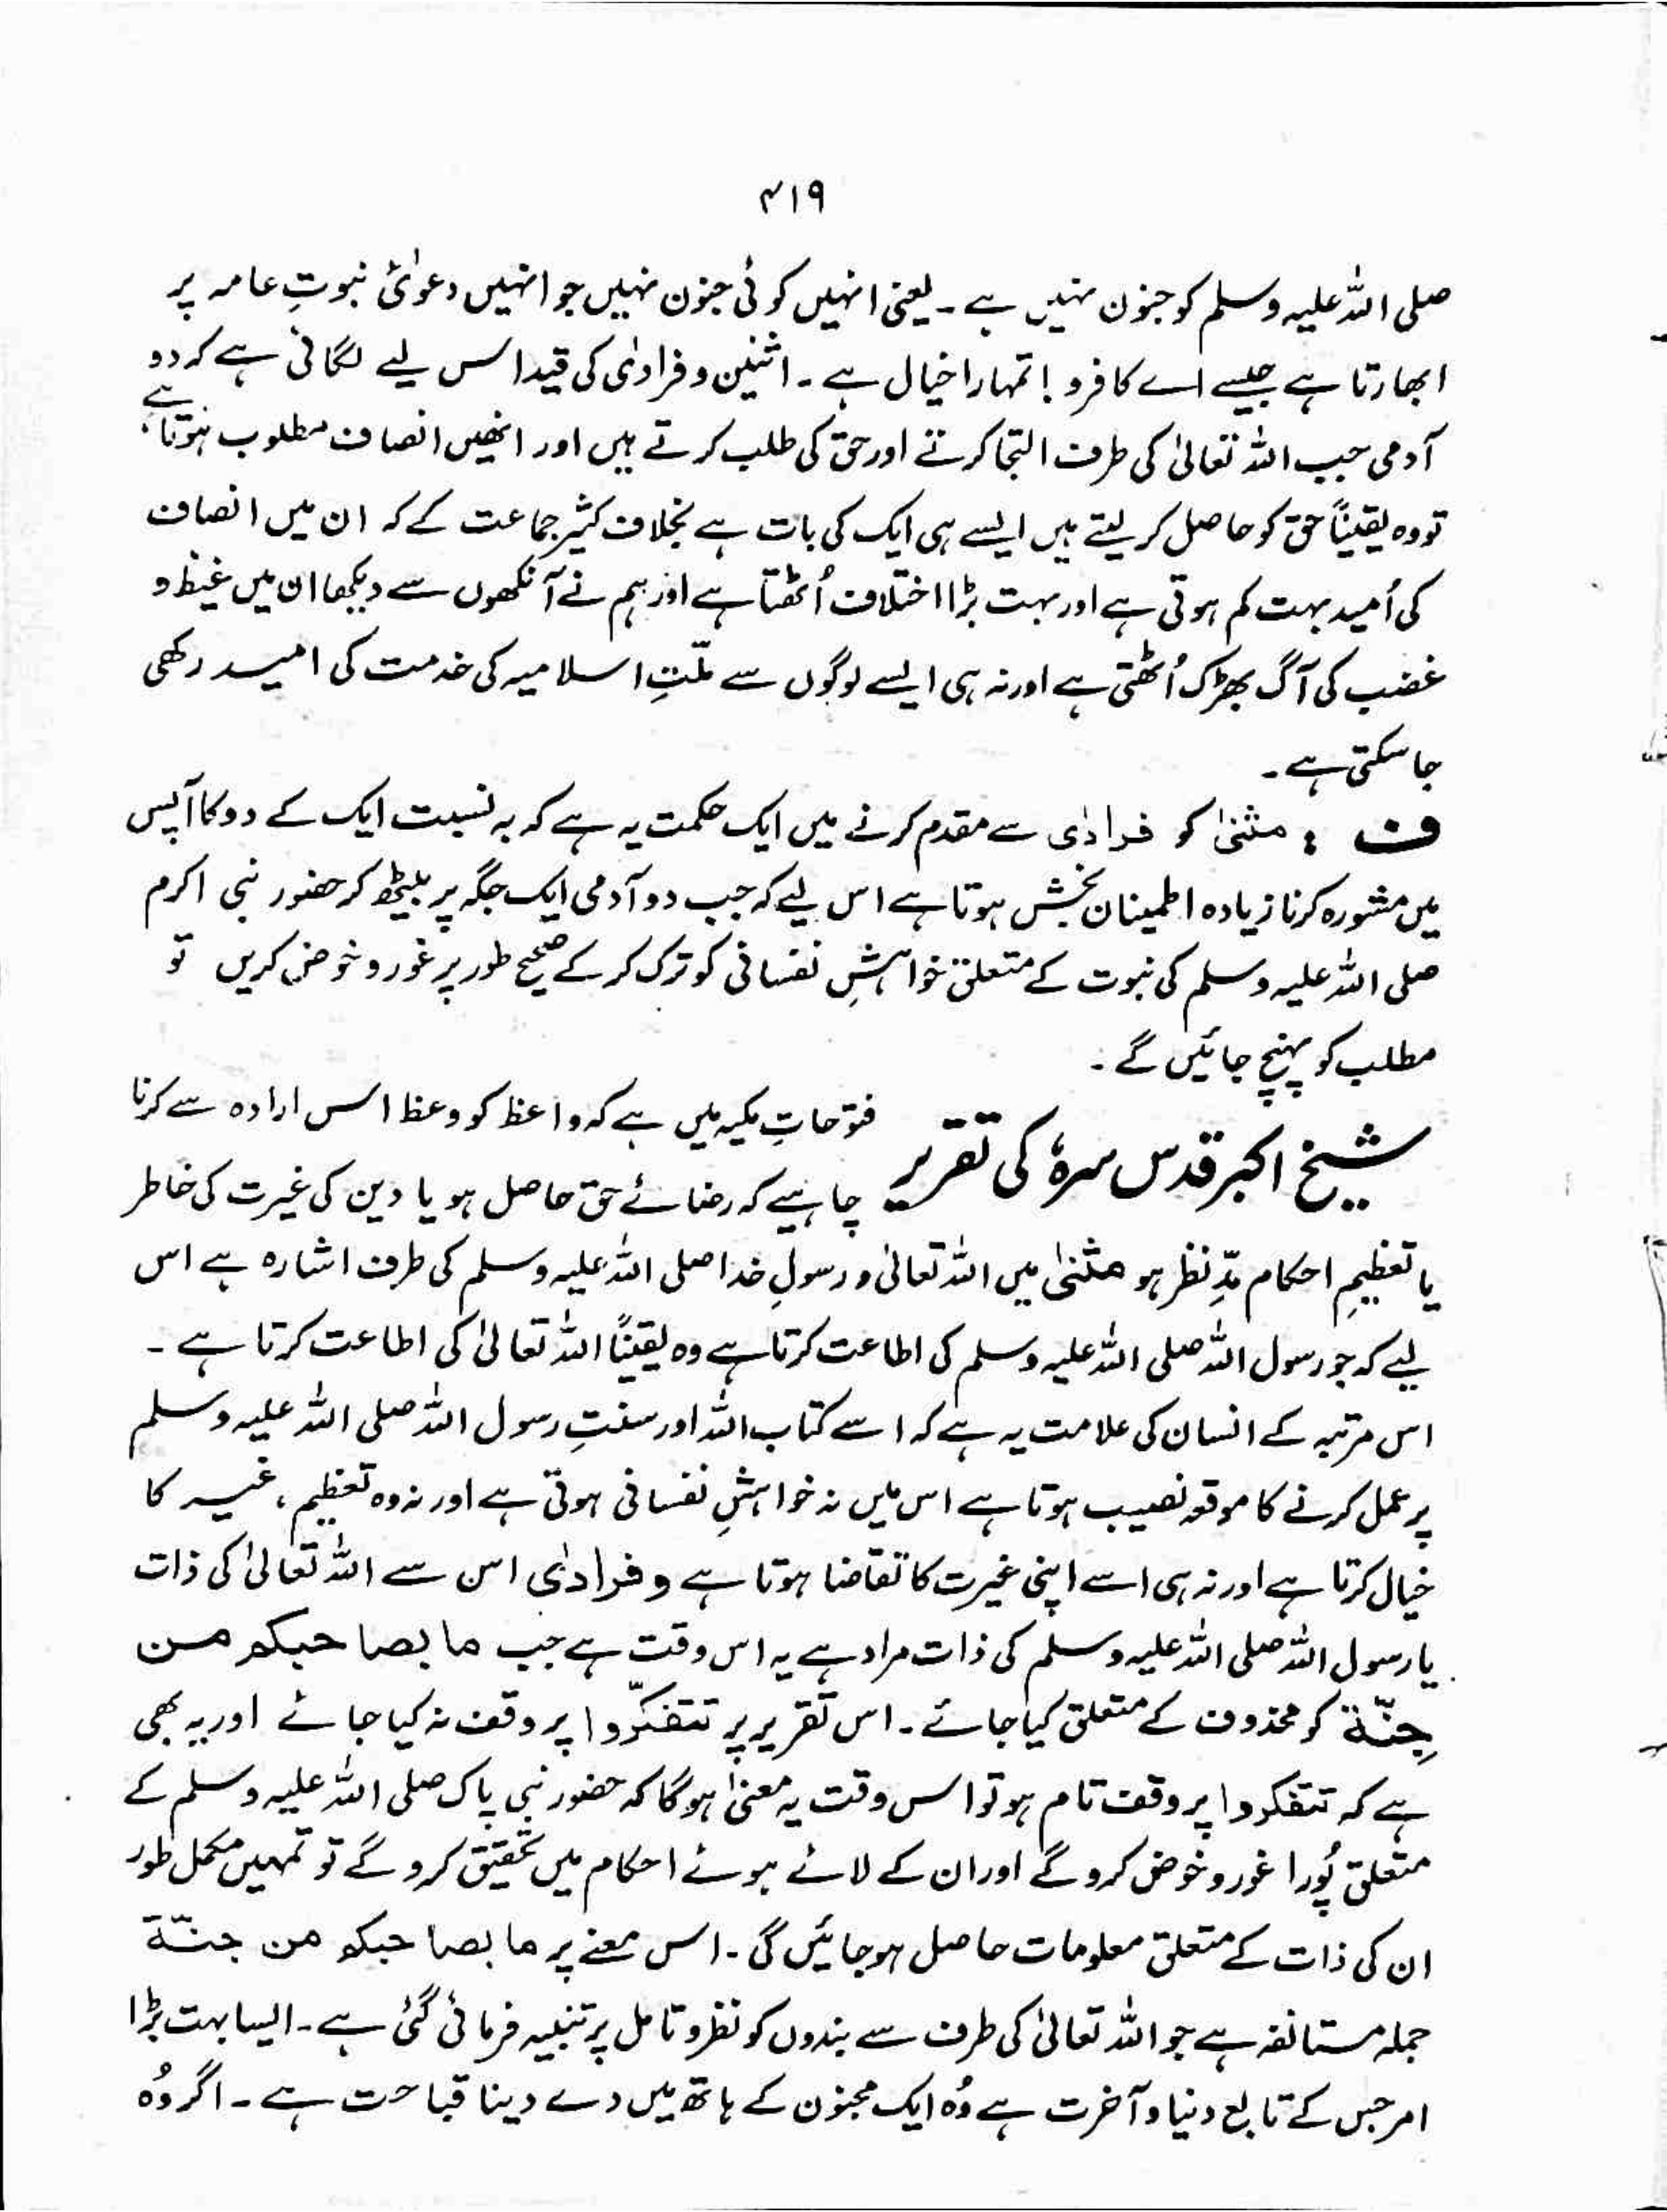 ۴۱۹
صلی اللہ علیہ وسلم کو جنون نہیں ہے ۔ یعنی انہیں کوئی جنون نہیں جو انہیں دعوائے نبوتِ عامہ پر
ابھارتا ہے جیسے اے کافرو ! تمہارا خیال ہے ۔ اثنین و فرادٰی کی قید اس لیے لگائی ہے کہ دو
آدمی جب اللہ تعالیٰ کی طرف التجا کرتے اور حق کی طلب کرتے ہیں اور انھیں انصاف مطلوب ہوتا ہے،
تو وہ یقیناً حق کو حاصل کر لیتے ہیں ایسے ہی ایک کی بات ہے بخلاف کثیر جماعت کے کہ ان میں انصاف
کی اُمید بہت کم ہوتی ہے اور بہت بڑا اختلاف اُٹھتا ہے اور ہم نے آنکھوں سے دیکھا ان میں غیظ و
غضب کی آگ بھڑک اُٹھتی ہے اور نہ ہی ایسے لوگوں سے ملّتِ اسلامیہ کی خدمت کی امید رکھی
جا سکتی ہے ۔
ف : مثنیٰ کو فرادٰی سے مقدم کرنے میں ایک حکمت یہ ہے کہ بہ نسبت ایک کے دو کا آپس
میں مشورہ کرنا زیادہ اطمینان بخش ہوتا ہے اس لیے کہ جب دو آدمی ایک جگہ پر بیٹھ کر حضور نبی اکرم
صلی اللہ علیہ وسلم کی نبوت کے متعلق خواہشِ نفسانی کو ترک کر کے صحیح طور پر غور و خوض کریں تو
مطلب کو پہنچ جائیں گے ۔
شیخ اکبر قدس سرہٗ کی تقریر فتوحاتِ مکیہ میں ہے کہ واعظ کو وعظ اس ارادہ سے کرنا
چاہیے کہ رضائے حق حاصل ہو یا دین کی غیرت کی خاطر
یا تعظیمِ احکام مدِّ نظر ہو مثنیٰ میں اللہ تعالیٰ و رسولِ خدا صلی اللہ علیہ وسلم کی طرف اشارہ ہے اس
لیے کہ جو رسول اللہ صلی اللہ علیہ وسلم کی اطاعت کرتا ہے وہ یقیناً اللہ تعالیٰ کی اطاعت کرتا ہے ۔
اس مرتبہ کے انسان کی علامت یہ ہے کہ اسے کتاب اللہ اور سنتِ رسول اللہ صلی اللہ علیہ وسلم
پر عمل کرنے کا موقعہ نصیب ہوتا ہے اس میں نہ خواہشِ نفسانی ہوتی ہے اور نہ وہ تعظیم ، غیر کا
خیال کرتا ہے اور نہ ہی اسے اپنی غیرت کا تقاضا ہوتا ہے و فرادٰی اس سے اللہ تعالیٰ کی ذات
یا رسول اللہ صلی اللہ علیہ وسلم کی ذات مراد ہے یہ اس وقت ہے جب ما بصاحبکم من
جِنّة کو محذوف کے متعلق کیا جائے ۔ اس تقریر پر تتفکّروا پر وقف نہ کیا جائے اور یہ بھی
ہے کہ تتفکروا پر وقف تام ہو تو اس وقت یہ معنیٰ ہوگا کہ حضور نبی پاک صلی اللہ علیہ وسلم کے
متعلق پُورا غور و خوض کرو گے اور ان کے لائے ہوئے احکام میں تحقیق کرو گے تو تمہیں مکمل طور
ان کی ذات کے متعلق معلومات حاصل ہو جائیں گی ۔ اس معنے پر ما بصاحبکم من جنّة
جملہ مستانفہ ہے جو اللہ تعالیٰ کی طرف سے بندوں کو نظر و تامل پر تنبیہ فرمائی گئی ہے ۔ ایسا بہت بڑا
امر جس کے تابع دنیا و آخرت ہے وُہ ایک مجنون کے ہاتھ میں دے دینا قباحت ہے ۔ اگر وُہ